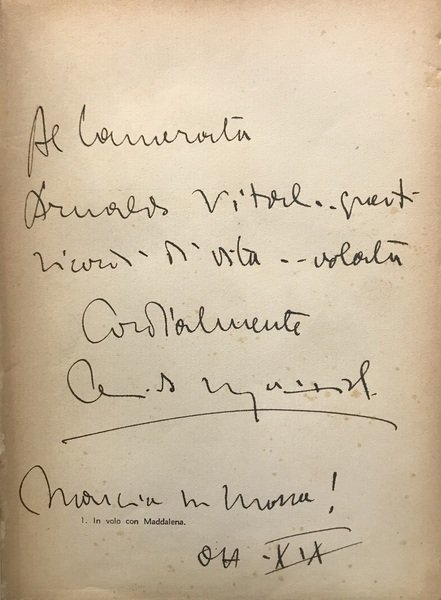 Al Camerata
Arnaldo Vitali.. questi
ricordi di vita .. volata
Cordialmente
Marcia su Mosca!
1. In volo con Maddalena.
Ott. XIX